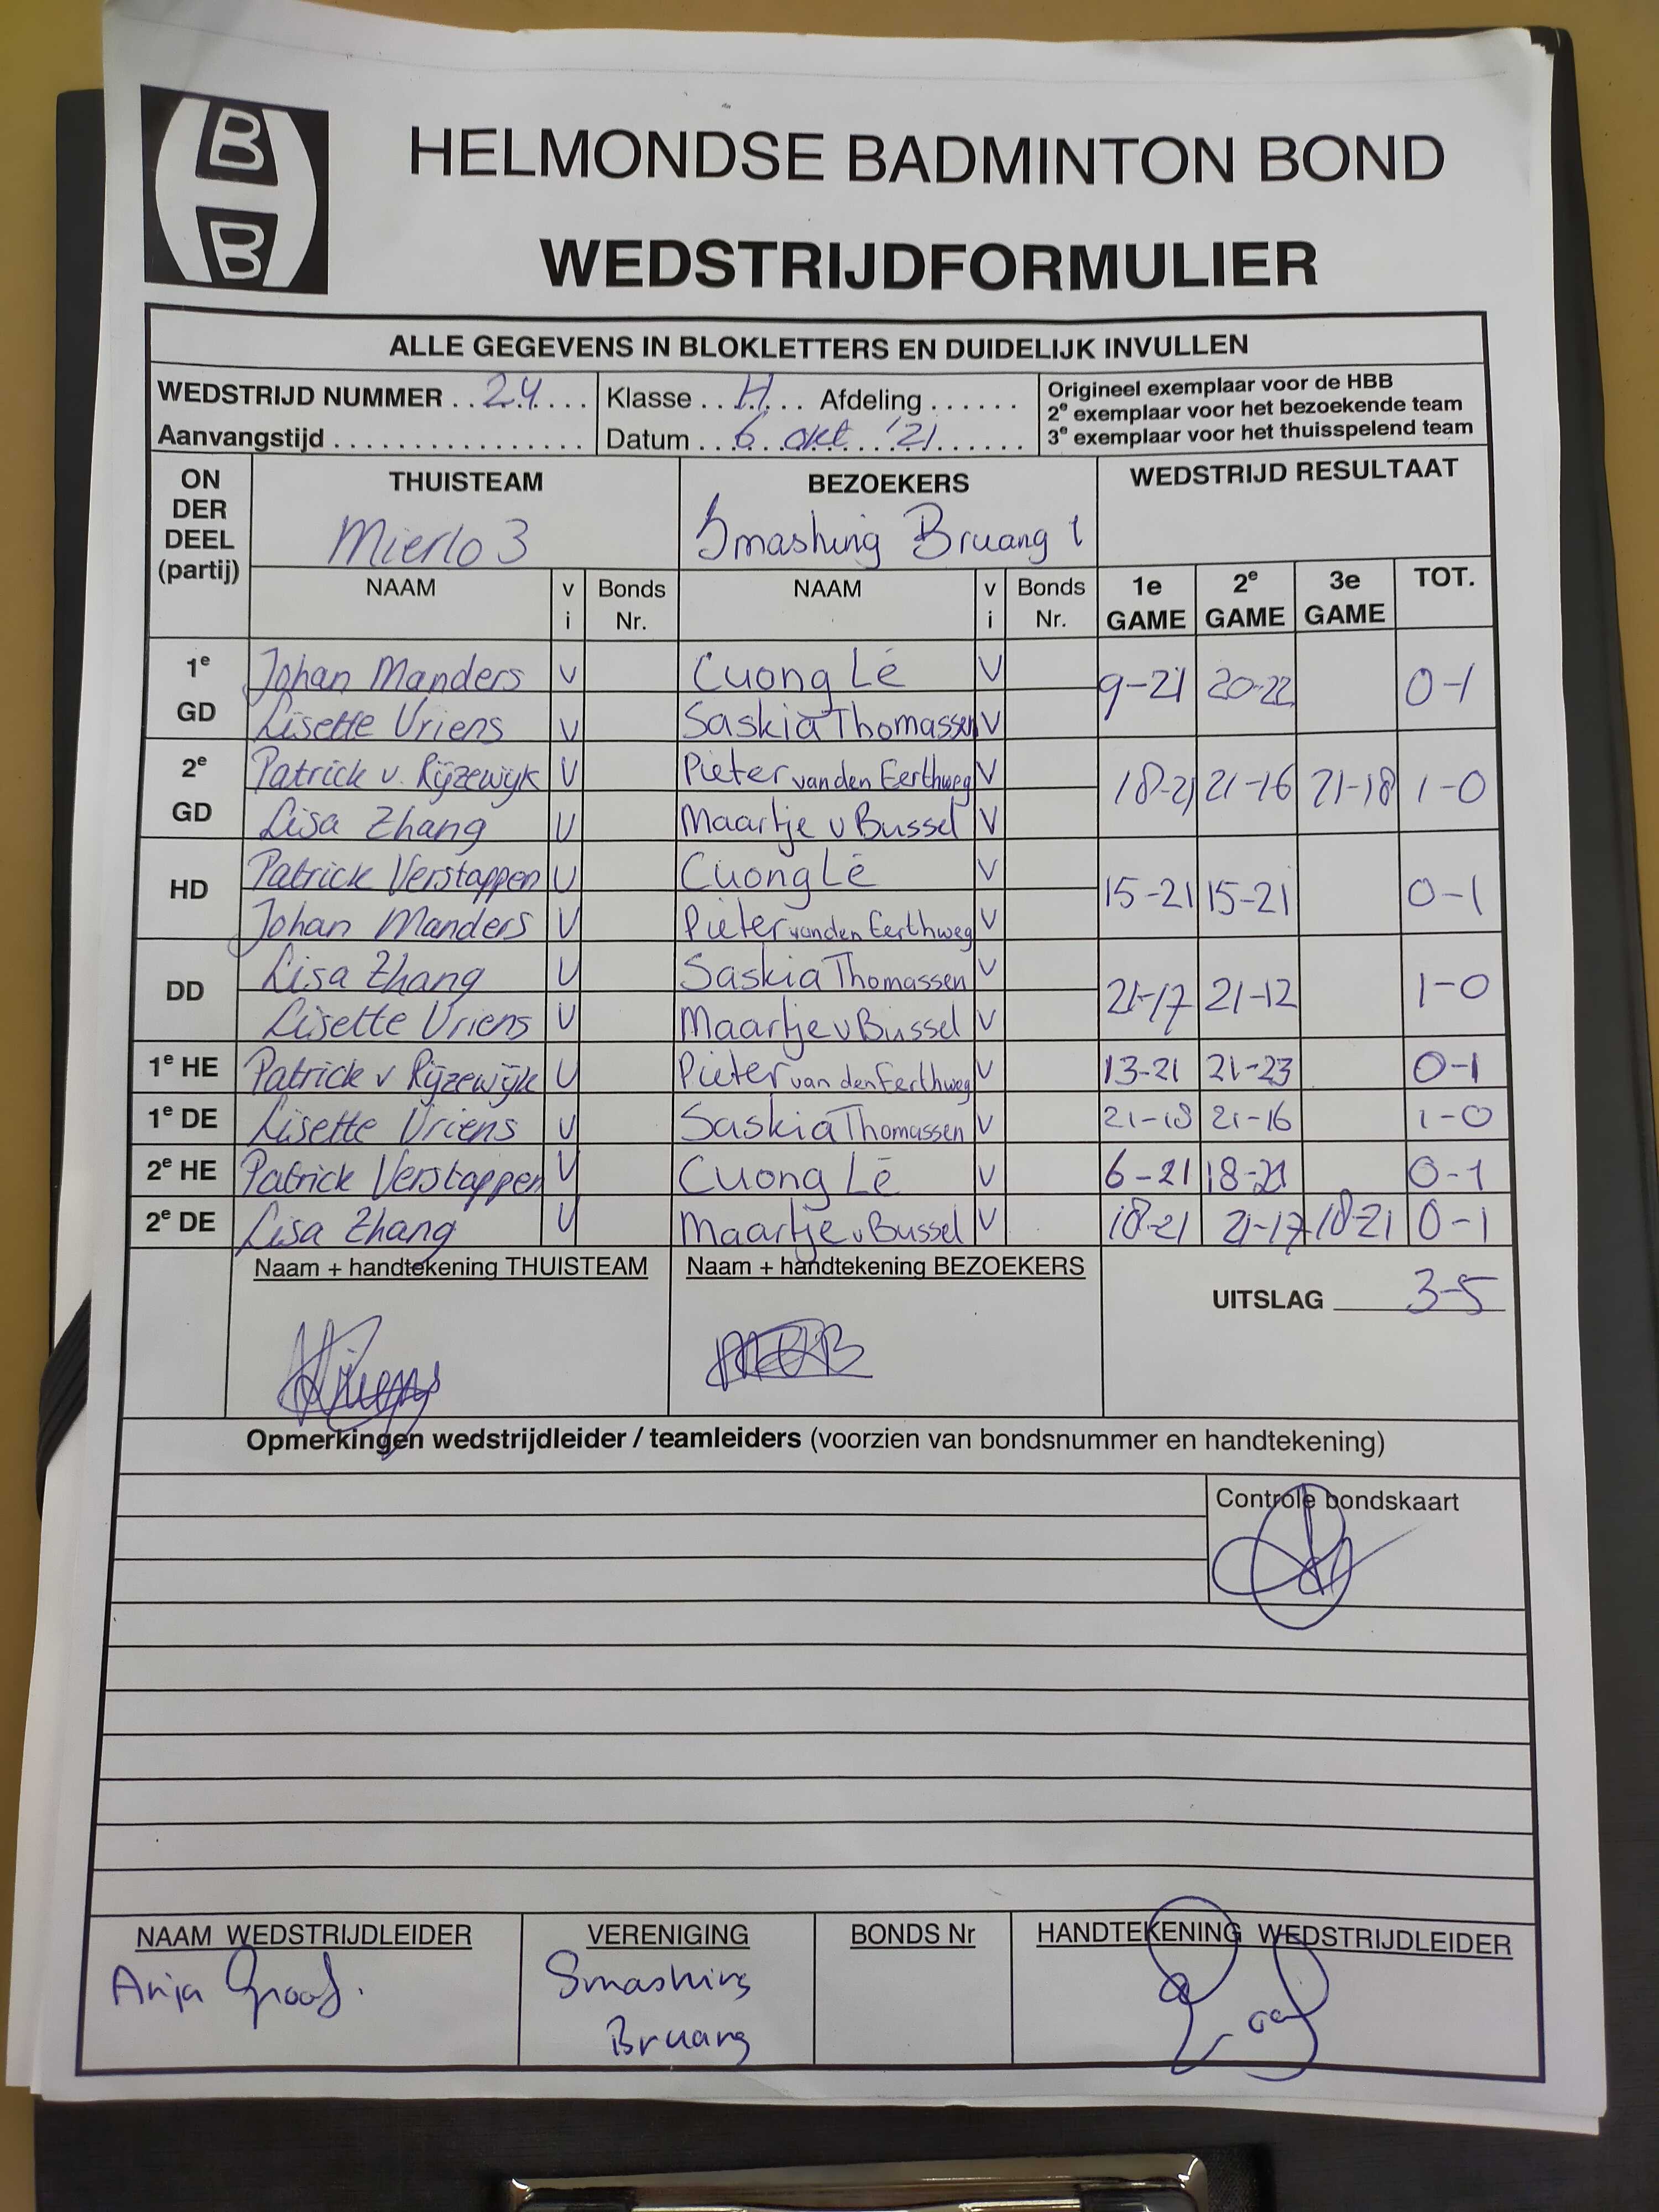 B
B
HELMONDSE BADMINTON BOND
WEDSTRIJDFORMULIER
ALLE GEGEVENS IN BLOKLETTERS EN DUIDELIJK INVULLEN
WEDSTRIJD NUMMER . . 24 . . . . Klasse . . H . . . Afdeling . . . . . .
Aanvangstijd . . . . . . . . . . . . . . . . Datum . . 6 okt '21 . . . . . .
Origineel exemplaar voor de HBB
2e exemplaar voor het bezoekende team
3e exemplaar voor het thuisspelend team
ON
DER
DEEL
(partij)
THUISTEAM BEZOEKERS WEDSTRIJD RESULTAAT
Mierlo 3 Smashing Bruang 1
NAAM v i Bonds Nr. NAAM v i Bonds Nr. 1e GAME 2e GAME 3e GAME TOT.
1e GD Johan Manders V Cuong Lê V 9-21 20-22 0-1
Lisette Vriens V Saskia Thomassen V
2e GD Patrick v. Rijzewijk V Pieter van den Eerthweg V 18-21 21-16 21-18 1-0
Lisa Zhang V Maartje v Bussel V
HD Patrick Verstappen V Cuong Lê V 15-21 15-21 0-1
Johan Manders V Pieter van den Eerthweg V
DD Lisa Zhang V Saskia Thomassen V 21-17 21-12 1-0
Lisette Vriens V Maartje v Bussel V
1e HE Patrick v Rijzewijk V Pieter van den Eerthweg V 13-21 21-23 0-1
1e DE Lisette Vriens V Saskia Thomassen V 21-18 21-16 1-0
2e HE Patrick Verstappen V Cuong Lê V 6-21 18-21 0-1
2e DE Lisa Zhang V Maartje v Bussel V 18-21 21-17 18-21 0-1
Naam + handtekening THUISTEAM Naam + handtekening BEZOEKERS
UITSLAG 3-5
Opmerkingen wedstrijdleider / teamleiders (voorzien van bondsnummer en handtekening)
Controle bondskaart
NAAM WEDSTRIJDLEIDER VERENIGING BONDS Nr HANDTEKENING WEDSTRIJDLEIDER
Anja Graaf.
Smashing
Bruang